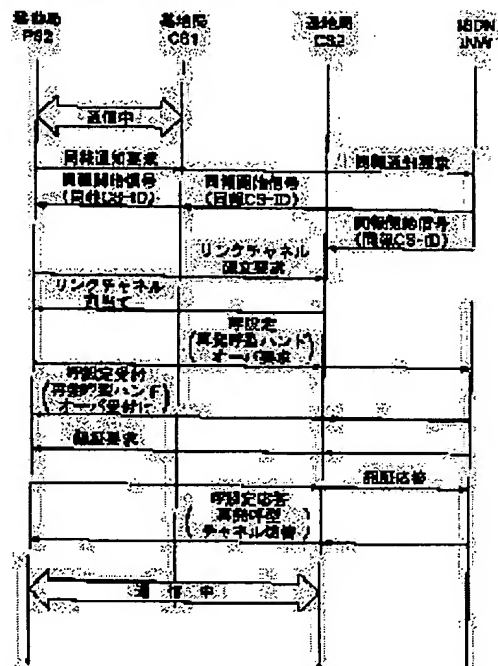 移動局 基地局 基地局 ISDN
PS2 CS1 CS2 INW
通信中
同報通知要求 同報通知要求
同報開始信号 同報開始信号
(同報CS-ID) (同報CS-ID)
同報開始信号
(同報CS-ID)
リンクチャネル
確立要求
リンクチャネル
割当て
呼設定
(再発呼型ハンド
オーバ要求)
呼設定受付
(再発呼型ハンド
オーバ受付)
認証要求
認証応答
呼設定応答
(再発呼型
チャネル切替)
通信中